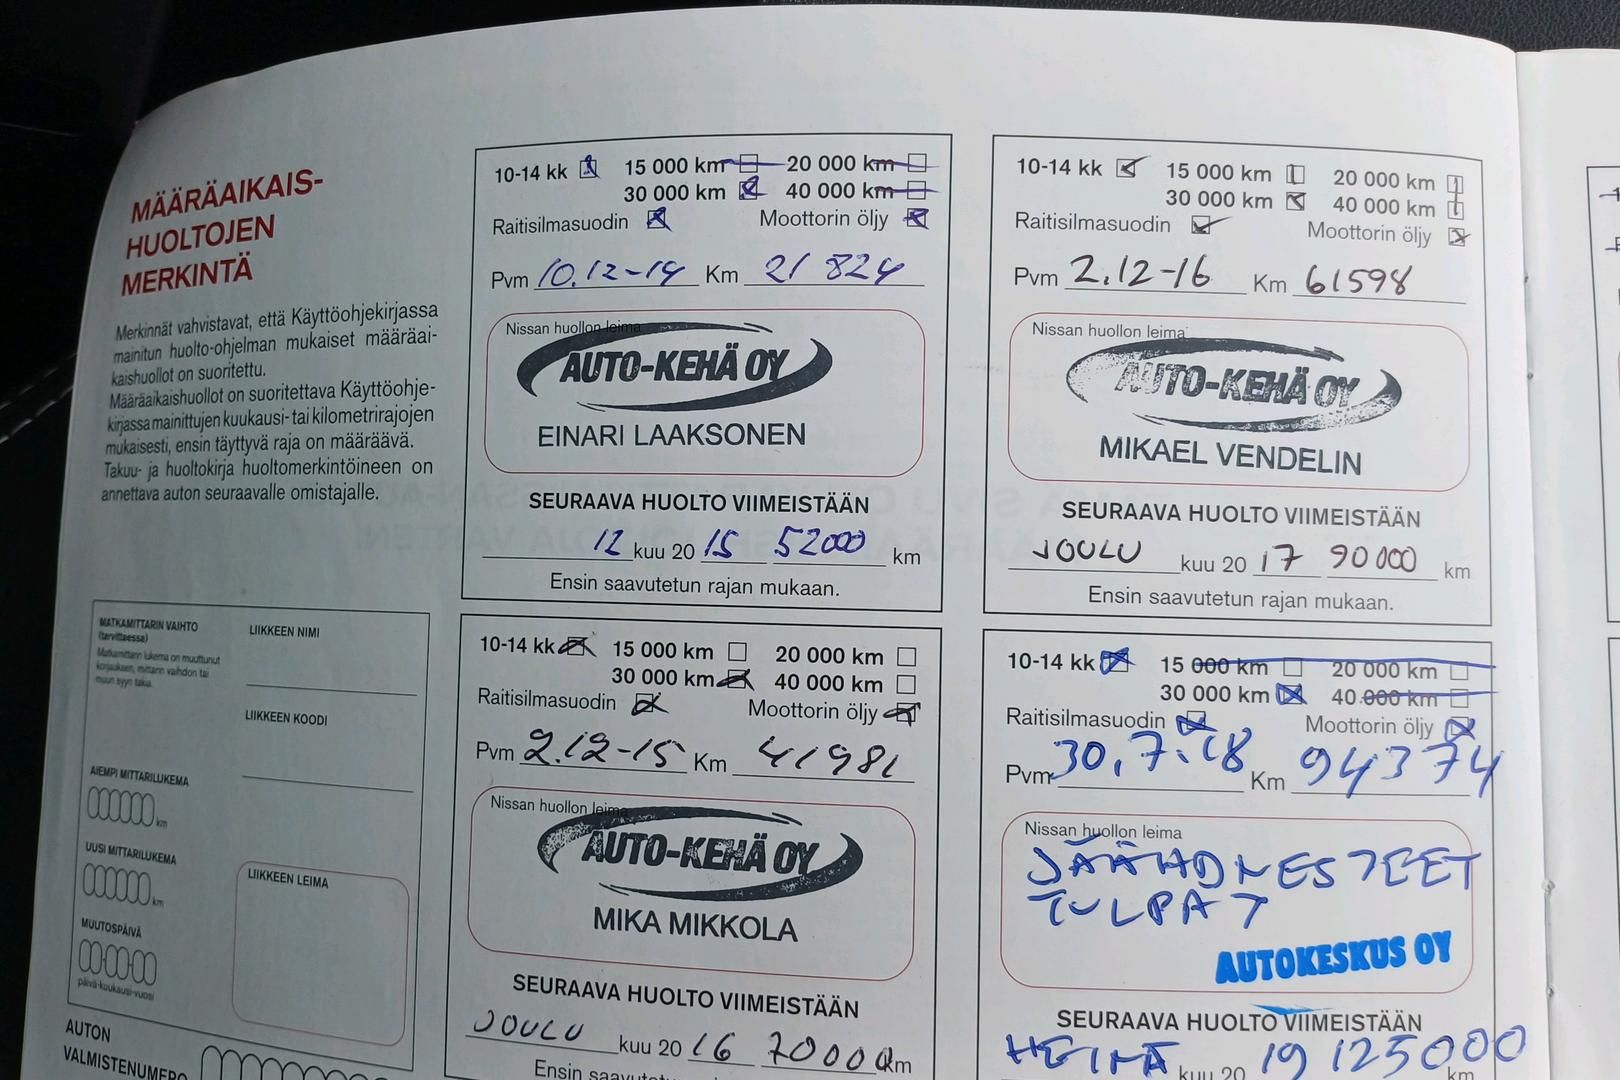 MÄÄRÄAIKAIS-
HUOLTOJEN
MERKINTÄ
Merkinnät vahvistavat, että Käyttöohjekirjassa
mainitun huolto-ohjelman mukaiset määräai-
kaishuollot on suoritettu.
Määräaikaishuollot on suoritettava Käyttöohje-
kirjassa mainittujen kuukausi- tai kilometrirajojen
mukaisesti, ensin täyttyvä raja on määräävä.
Takuu- ja huoltokirja huoltomerkintöineen on
annettava auton seuraavalle omistajalle.
MATKAMITTARIN VAIHTO
(tarvittaessa)
Matkamittarin lukema on muuttunut
korjauksen, mittarin vaihdon tai
muun syyn takia.
AIEMPI MITTARILUKEMA
km
UUSI MITTARILUKEMA
km
MUUTOSPÄIVÄ
päivä-kuukausi-vuosi
LIIKKEEN NIMI
LIIKKEEN KOODI
LIIKKEEN LEIMA
AUTON
VALMISTENUMERO
10-14 kk 15 000 km 20 000 km
30 000 km 40 000 km
Raitisilmasuodin Moottorin öljy
Pvm 10.12-14 Km 21 824
Nissan huollon leima
AUTO-KEHÄ OY
EINARI LAAKSONEN
SEURAAVA HUOLTO VIIMEISTÄÄN
12 kuu 20 15 52000 km
Ensin saavutetun rajan mukaan.
10-14 kk 15 000 km 20 000 km
30 000 km 40 000 km
Raitisilmasuodin Moottorin öljy
Pvm 2.12-15 Km 41981
Nissan huollon leima
AUTO-KEHÄ OY
MIKA MIKKOLA
SEURAAVA HUOLTO VIIMEISTÄÄN
JOULU kuu 20 16 70000 km
Ensin saavutetun rajan mukaan.
10-14 kk 15 000 km 20 000 km
30 000 km 40 000 km
Raitisilmasuodin Moottorin öljy
Pvm 2.12-16 Km 61598
Nissan huollon leima
AUTO-KEHÄ OY
MIKAEL VENDELIN
SEURAAVA HUOLTO VIIMEISTÄÄN
JOULU kuu 20 17 90000 km
Ensin saavutetun rajan mukaan.
10-14 kk 15 000 km 20 000 km
30 000 km 40 000 km
Raitisilmasuodin Moottorin öljy
Pvm 30.7.18 Km 94374
Nissan huollon leima
JÄÄHDNESTEET
TULPAT
AUTOKESKUS OY
SEURAAVA HUOLTO VIIMEISTÄÄN
HEINÄ kuu 20 19 125000 km